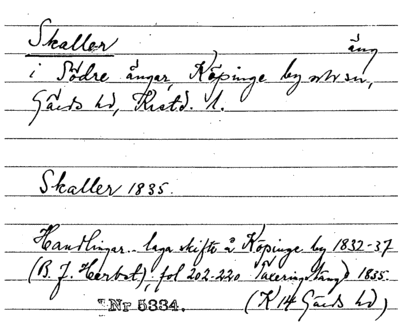 Skaller äng
i Södre ängar, Köpinge by och sn,
Gärds hd, Kristd. l.
Skaller 1835.
Handlingar.. laga skifte å Köpinge by 1832-37
(B. J. Herbst), fol 202-220 Taxeringslängd 1835.
Nr 5334. (K 14 Gärds hd)